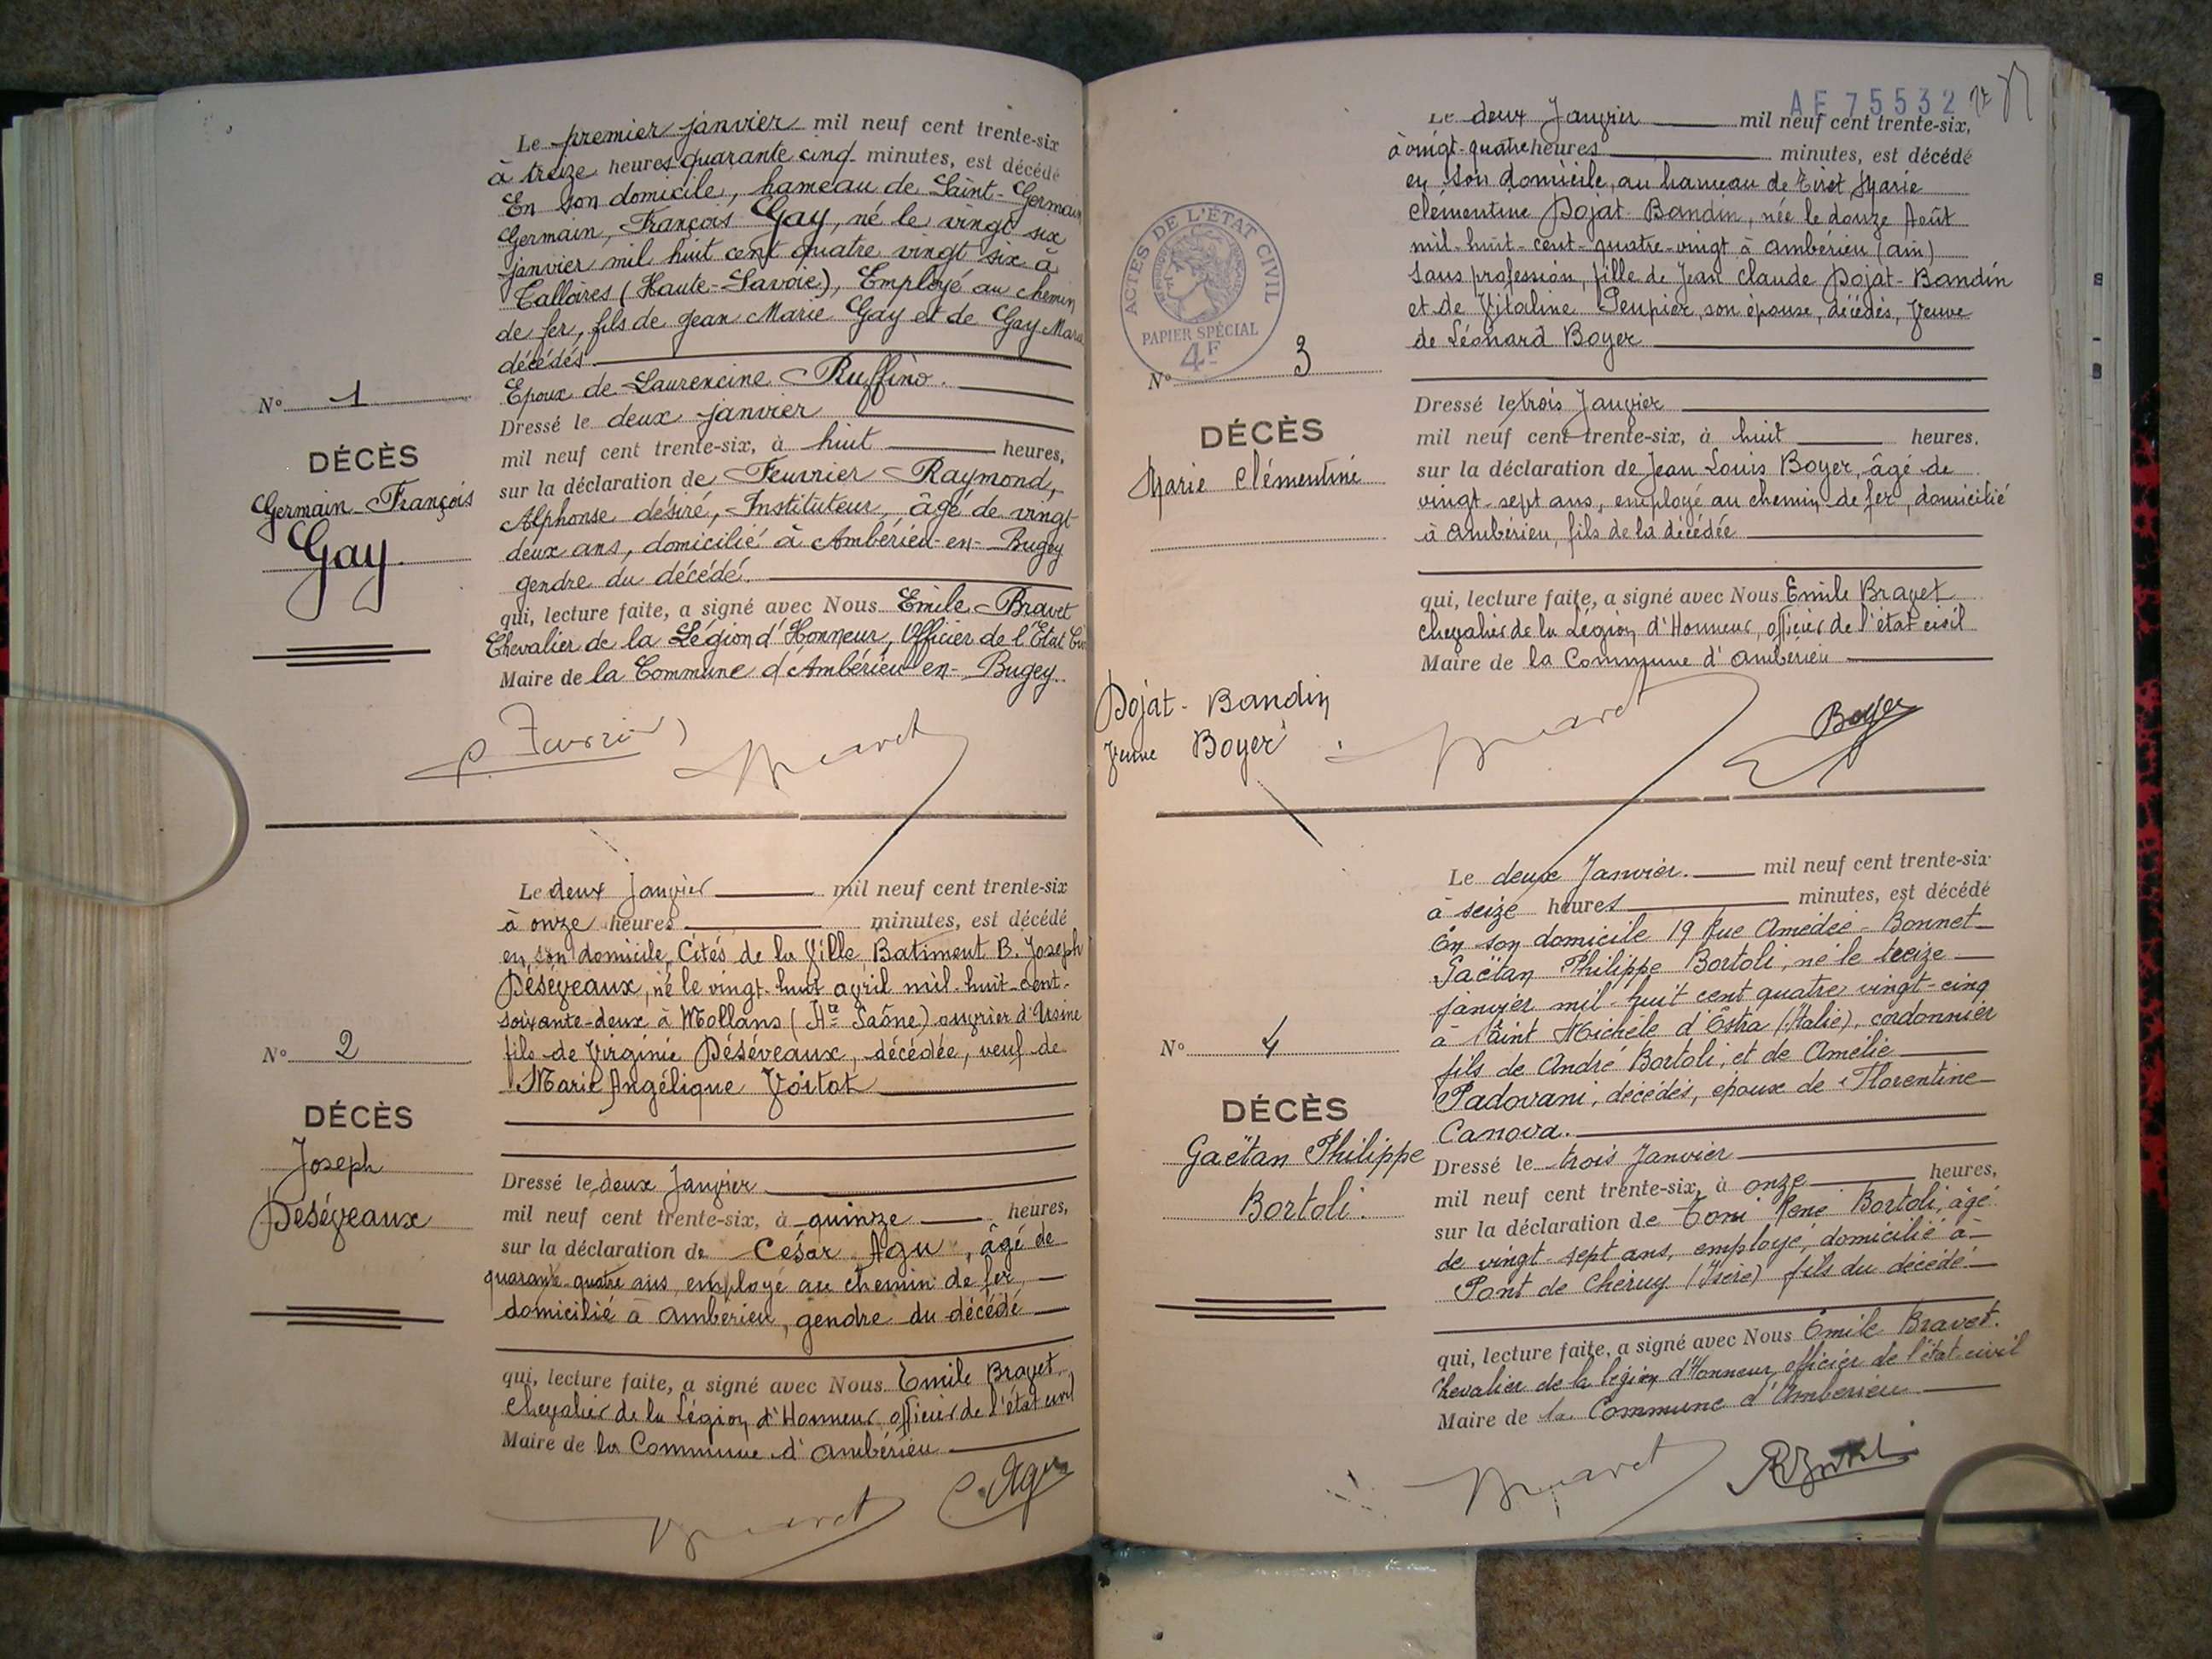 Le premier janvier mil neuf cent trente-six
à treize heures quarante cinq minutes, est décédé
En son domicile, hameau de Saint-Germain
Germain, François Gay, né le vingt six
janvier mil huit cent quatre vingt six à
Talloires (Haute-Savoie), Employé au chemin
de fer, fils de Jean Marie Gay et de Gay Marie
décédés
Epoux de Laurencine Ruffino.
N° 1
DÉCÈS
Germain-François
Gay.
Dressé le deux janvier
mil neuf cent trente-six, à huit heures,
sur la déclaration de Feuvrier Raymond,
Alphonse désiré, Instituteur, âgé de vingt
deux ans, domicilié à Ambérieu-en-Bugey
gendre du décédé.
qui, lecture faite, a signé avec Nous Emile Bravet
Chevalier de la Légion d'Honneur, Officier de l'Etat Civ
Maire de la Commune d'Ambérieu-en-Bugey.
Bravet
Le deux Janvier mil neuf cent trente-six
à onze heures minutes, est décédé
en son domicile, Cités de la Ville Batiment B. Joseph
Déséveaux, né le vingt-huit avril mil-huit-cent-
soixante-deux à Mollans (Hte Saône) ouvrier d'Usine
fils de Virginie Déséveaux, décédée, veuf de
Marie Angélique Voitot
N° 2
DÉCÈS
Joseph
Deséveaux
Dressé le deux Janvier
mil neuf cent trente-six, à quinze heures,
sur la déclaration de César Agu, âgé de
quarante-quatre ans, employé au chemin de fer,
domicilié à Ambérieu, gendre du décédé
qui, lecture faite, a signé avec Nous Emile Bravet
Chevalier de la Légion d'Honneur officier de l'état civil
Maire de la Commune d'Ambérieu
Bravet C. Agu
AF 75532
Le deux Janvier mil neuf cent trente-six,
à vingt-quatre heures minutes, est décédé
en son domicile, au hameau de Tiret Marie
Clémentine Dojat-Bandin, née le douze Août
mil-huit-cent-quatre-vingt à Ambérieu (Ain)
sans profession, fille de Jean Claude Dojat-Bandin
et de Vitaline Peupier, son épouse, décédés, Veuve
de Léonard Boyer
ACTES DE L'ÉTAT CIVIL
PAPIER SPÉCIAL
4F
N° 3
DÉCÈS
Marie Clémentine
Dojat-Bandin
Veuve Boyer
Dressé le trois Janvier
mil neuf cent trente-six, à huit heures.
sur la déclaration de Jean Louis Boyer, âgé de
vingt-sept ans, employé au chemin de fer, domicilié
à Ambérieu, fils de la décédée
qui, lecture faite, a signé avec Nous Emile Bravet
Chevalier de la Légion d'Honneur, officier de l'état civil
Maire de la Commune d'Ambérieu
Bravet Boyer
Le deux Janvier. mil neuf cent trente-six
à seize heures minutes, est décédé
En son domicile 19 Rue Amédée-Bonnet
Gaëtan Philippe Bortoli, né le treize
janvier mil-huit cent quatre vingt-cinq
à Saint Michèle d'Estra (Italie), cordonnier
fils de André Bortoli, et de Amélie
Padovani, décédés, époux de Florentine
Canova.
N° 4
DÉCÈS
Gaëtan Philippe
Bortoli.
Dressé le trois Janvier
mil neuf cent trente-six, à onze heures,
sur la déclaration de Toni René Bortoli, âgé
de vingt-sept ans, employé, domicilié à
Pont de Chéruy (Isère) fils du décédé
qui, lecture faite, a signé avec Nous Emile Bravet.
Chevalier de la légion d'Honneur, officier de l'état-civil
Maire de la Commune d'Ambérieu
Bravet